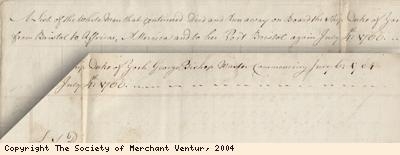 A List of the Whole Men that continued Died and Run away on Board the Ship Duke of York
from Bristol to Affrica, America and to her Port Bristol again July 1760
Ship Duke of York George Bishop Master Commencing June
July 1760
Copyright The Society of Merchant Ventur, 2004